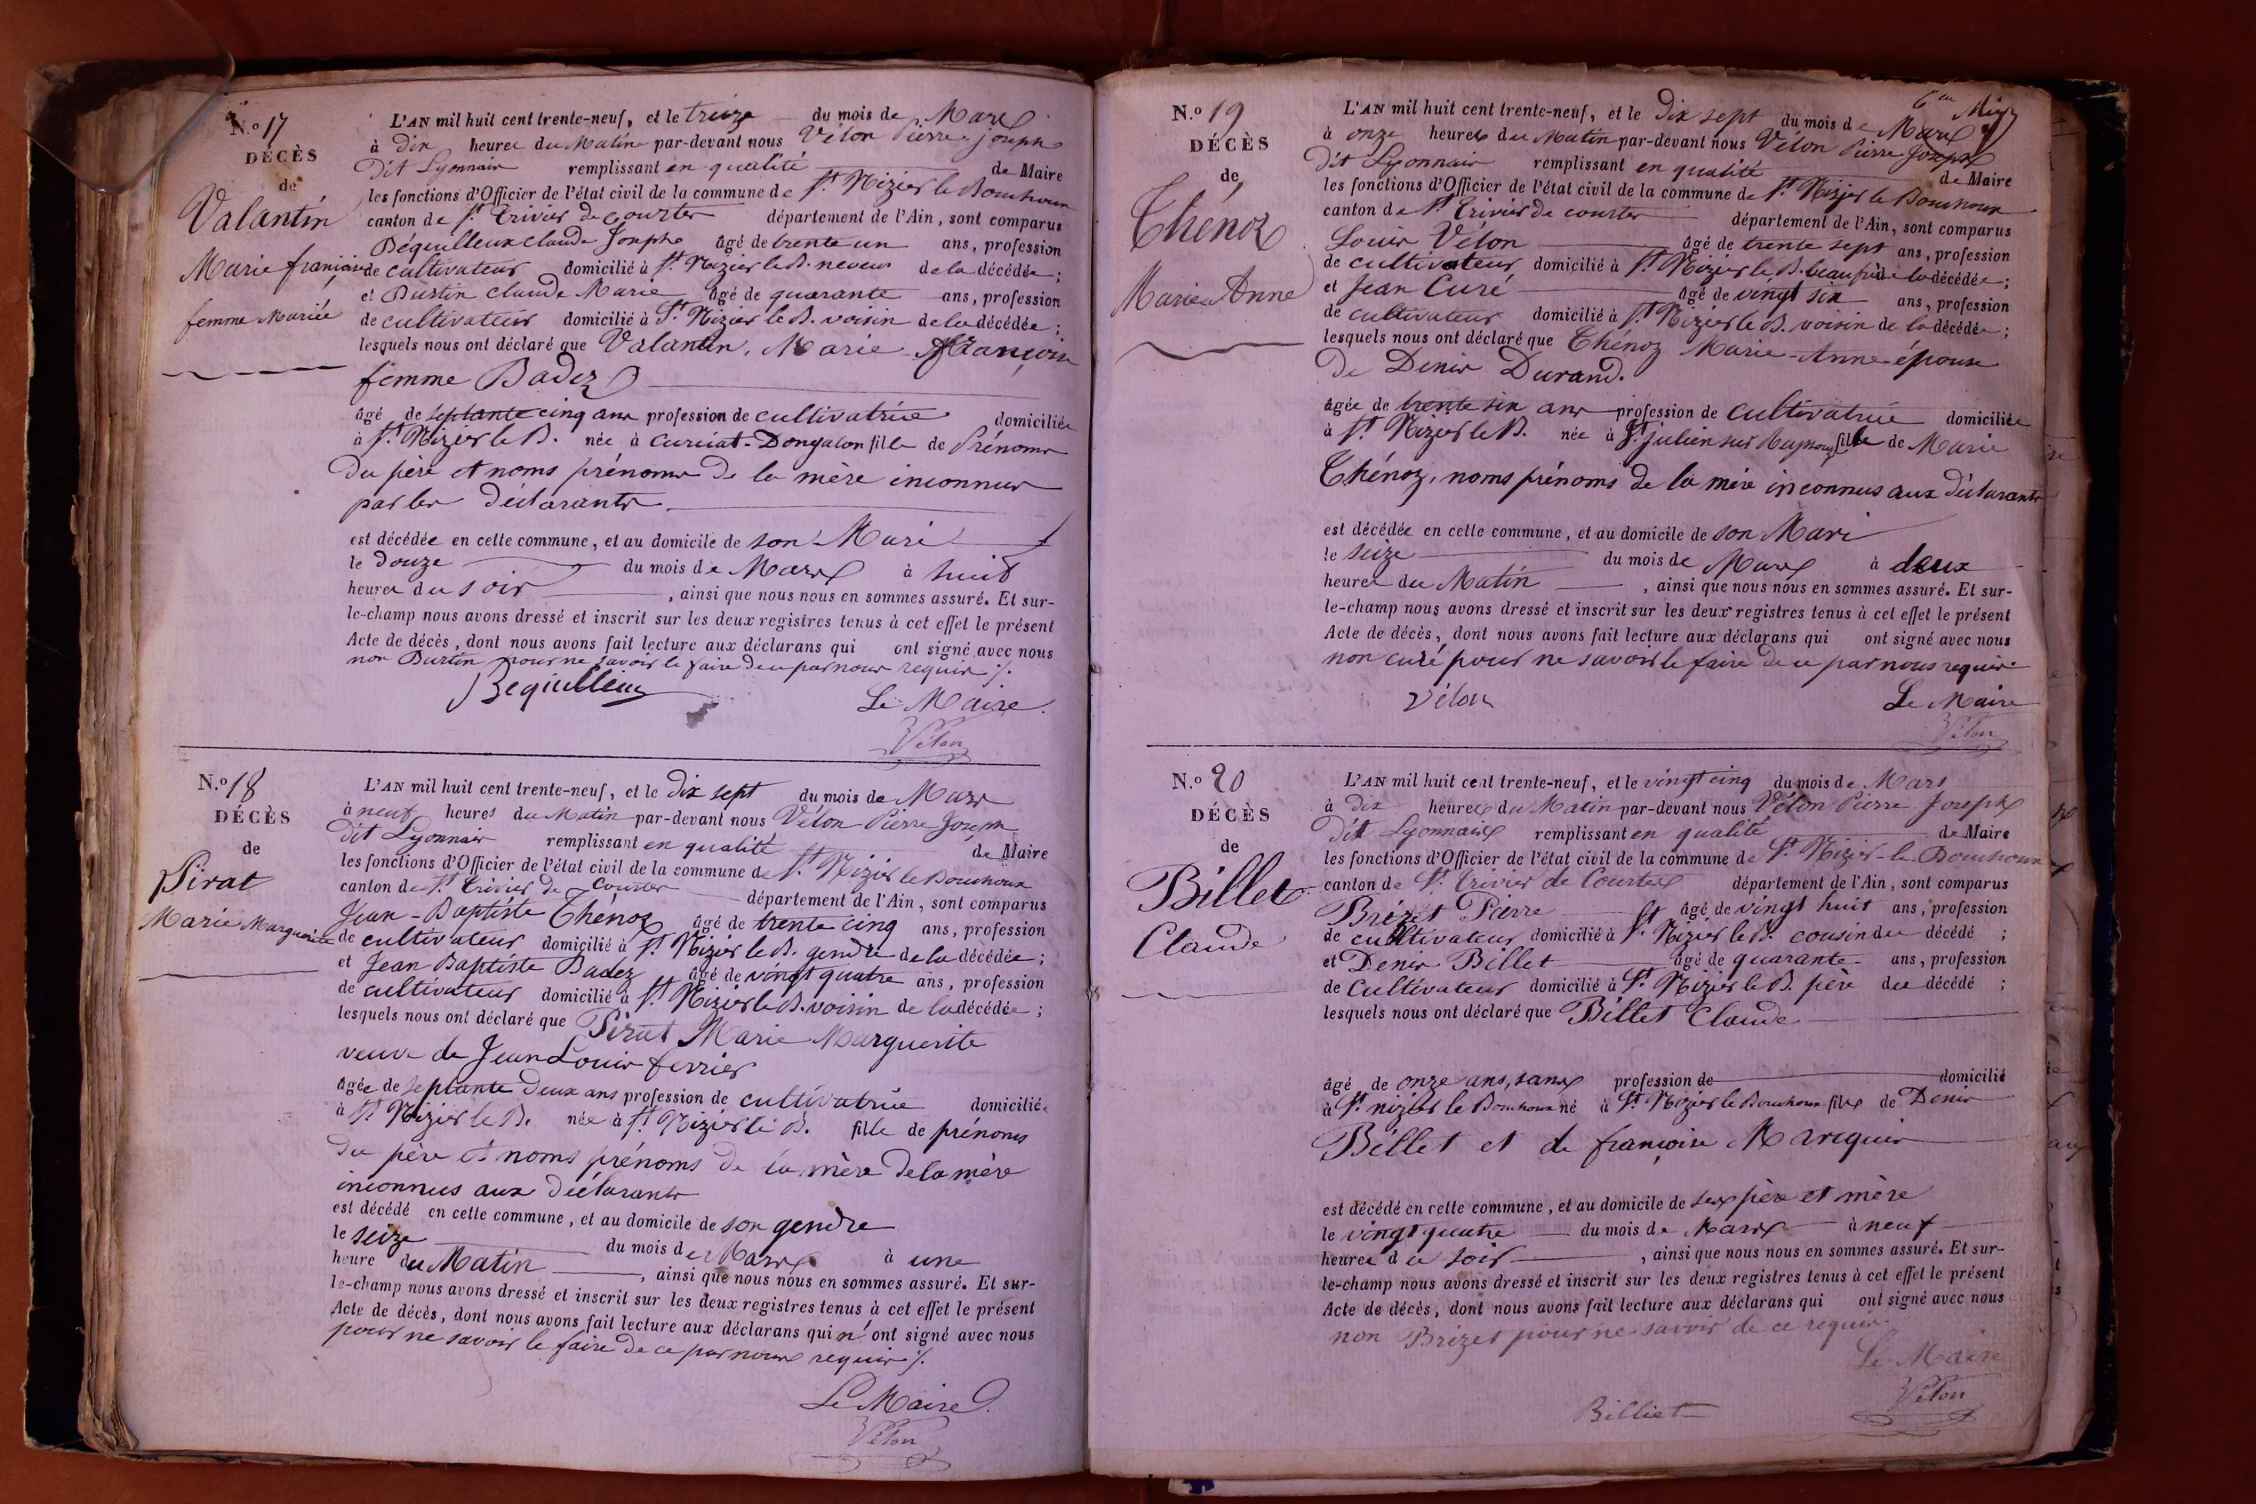 N.o 17
DÉCÈS
de
Valantin
Marie françoise
femme Mariée
L'AN mil huit cent trente-neuf, et le treize du mois de Mars
à dix heures du Matin par-devant nous Vélon Pierre Joseph
dit Lyonnais remplissant en qualité de Maire
les fonctions d'Officier de l'état civil de la commune de St Nizier le Bouchoux
canton de St Trivier de Courtes département de l'Ain, sont comparus
Béguilleux Claude Joseph âgé de trente un ans, profession
de cultivateur domicilié à St Nizier le B. neveu de la décédée;
et Dustin Claude Marie âgé de quarante ans, profession
de cultivateur domicilié à St Nizier le B. voisin de la décédée;
lesquels nous ont déclaré que Valantin, Marie Françoise
femme Badez
âgé de septante cinq ans profession de cultivatrice domiciliée
à St Nizier le B. née à Curciat-Dongalon fille de Prénoms
du père et noms prénoms de la mère inconnus
par les déclarants
est décédée en cette commune, et au domicile de son Mari
le douze du mois de Mars à huit
heures du soir, ainsi que nous nous en sommes assuré. Et sur-
le-champ nous avons dressé et inscrit sur les deux registres tenus à cet effet le présent
Acte de décès, dont nous avons fait lecture aux déclarans qui ont signé avec nous
non Dustin pour ne savoir le faire de ce par nous requis ./.
Beguilleux
Le Maire.
Vélon
N.o 18
DÉCÈS
de
Pirat
Marie Marguerite
L'AN mil huit cent trente-neuf, et le dix sept du mois de Mars
à neuf heures du Matin par-devant nous Vélon Pierre Joseph
dit Lyonnais remplissant en qualité de Maire
les fonctions d'Officier de l'état civil de la commune de St Nizier le Bouchoux
canton de St Trivier de Courtes département de l'Ain, sont comparus
Jean-Baptiste Thénoz âgé de trente cinq ans, profession
de cultivateur domicilié à St Nizier le B. gendre de la décédée;
et Jean Baptiste Badez âgé de vingt quatre ans, profession
de cultivateur domicilié à St Nizier le B. voisin de la décédée;
lesquels nous ont déclaré que Pirat Marie Marguerite
veuve de Jean Louis ferrier
âgée de septante deux ans profession de cultivatrice domiciliée
à St Nizier le B. née à St Nizier le B. fille de prénoms
du père et noms prénoms de la mère de la mère
inconnus aux déclarants
est décédé en cette commune, et au domicile de son gendre
le seize du mois de Mars à une
heure du Matin, ainsi que nous nous en sommes assuré. Et sur-
le-champ nous avons dressé et inscrit sur les deux registres tenus à cet effet le présent
Acte de décès, dont nous avons fait lecture aux déclarans qui n'ont signé avec nous
pour ne savoir le faire de ce par nous requis ./.
Le Maire.
Vélon
N.o 19
DÉCÈS
de
Thénoz
Marie Anne
L'AN mil huit cent trente-neuf, et le dix sept du mois de Mars
à onze heures du Matin par-devant nous Vélon Pierre Joseph
dit Lyonnais remplissant en qualité de Maire
les fonctions d'Officier de l'état civil de la commune de St Nizier le Bouchoux
canton de St Trivier de courtes département de l'Ain, sont comparus
Louis Vélon âgé de trente sept ans, profession
de cultivateur domicilié à St Nizier le B. beau frère de la décédée;
et Jean Curé âgé de vingt six ans, profession
de cultivateur domicilié à St Nizier le B. voisin de la décédée;
lesquels nous ont déclaré que Thénoz Marie-Anne épouse
de Denis Durand.
âgée de trente six ans profession de cultivatrice domiciliée
à St Nizier le B. née à St julien sur Reyssouze fille de Marie
Thénoz, noms prénoms de la mère inconnus aux déclarants
est décédée en cette commune, et au domicile de son Mari
le seize du mois de Mars à deux
heures du Matin, ainsi que nous nous en sommes assuré. Et sur-
le-champ nous avons dressé et inscrit sur les deux registres tenus à cet effet le présent
Acte de décès, dont nous avons fait lecture aux déclarans qui ont signé avec nous
non curé pour ne savoir le faire de ce par nous requis
Vélon
Le Maire
Vélon
N.o 20
DÉCÈS
de
Billet
Claude
L'AN mil huit cent trente-neuf, et le vingt cinq du mois de Mars
à dix heures du Matin par-devant nous Vélon Pierre Joseph
dit Lyonnais remplissant en qualité de Maire
les fonctions d'Officier de l'état civil de la commune de St Nizier-le-Bouchoux
canton de St Trivier de Courtes département de l'Ain, sont comparus
Brizet Pierre âgé de vingt huit ans, profession
de cultivateur domicilié à St Nizier le B. cousin du décédé;
et Denis Billet âgé de quarante ans, profession
de Cultivateur domicilié à St Nizier le B. père du décédé;
lesquels nous ont déclaré que Billet Claude
âgé de onze ans, sans profession de domicilié
à St nizier le Bouchoux né à St Nizier le Bouchoux fils de Denis
Billet et de françoise Marquis
est décédé en cette commune, et au domicile de ses père et mère
le vingt quatre du mois de Mars à neuf
heures du soir, ainsi que nous nous en sommes assuré. Et sur-
le-champ nous avons dressé et inscrit sur les deux registres tenus à cet effet le présent
Acte de décès, dont nous avons fait lecture aux déclarans qui ont signé avec nous
non Brizet pour ne savoir de ce requis
Le Maire
Vélon
Billiet